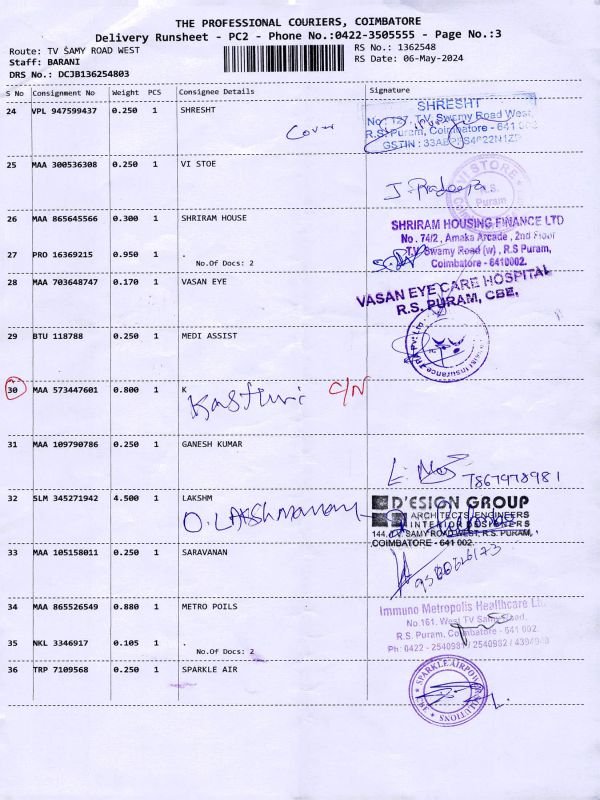 THE PROFESSIONAL COURIERS, COIMBATORE
Delivery Runsheet - PC2 - Phone No.:0422-3505555 - Page No.:3
Route: TV SAMY ROAD WEST
RS No.: 1362548
Staff: BARANI
RS Date: 06-May-2024
DRS No.: DCJB136254803
S No Consignment No Weight PCS Consignee Details Signature
24 VPL 947599437 0.250 1 SHRESHT
Cover
SHRESHT
No: 127, T.V. Swamy Road West,
R.S. Puram, Coimbatore - 641 002
25 MAA 300536308 0.250 1 VI STOE
J. Pradeepa
VI STORE
R.S. Puram
26 MAA 865645566 0.300 1 SHRIRAM HOUSE
SHRIRAM HOUSING FINANCE LTD
No. 74/2, Amaka Arcade, 2nd Floor
T.V. Swamy Road (w), R.S Puram,
Coimbatore - 6410002.
27 PRO 16369215 0.950 1 .
No.Of Docs: 2
28 MAA 703648747 0.170 1 VASAN EYE
VASAN EYE CARE HOSPITAL
R.S. PURAM, CBE.
29 BTU 118788 0.250 1 MEDI ASSIST
30 MAA 573447601 0.800 1 K
Kasthuri C/N
31 MAA 109790786 0.250 1 GANESH KUMAR
7867978981
32 SLM 345271942 4.500 1 LAKSHM
O. LAKSHMANAN
D'ESIGN GROUP
ARCHITECTS, ENGINEERS
INTERIOR DESIGNERS
144, T.V. SAMY ROAD WEST, R.S. PURAM,
COIMBATORE - 641 002.
33 MAA 105158011 0.250 1 SARAVANAN
34 MAA 865526549 0.880 1 METRO POILS
Immuno Metropolis Healthcare Lt
No.161, West TV Samy Road,
R.S. Puram, Coimbatore - 641 002.
Ph: 0422 - 2540981 / 2540982 /
35 NKL 3346917 0.105 1 .
No.Of Docs: 2
36 TRP 7109568 0.250 1 SPARKLE AIR
SPARKLE AIRPOWER SOLUTIONS
CBE